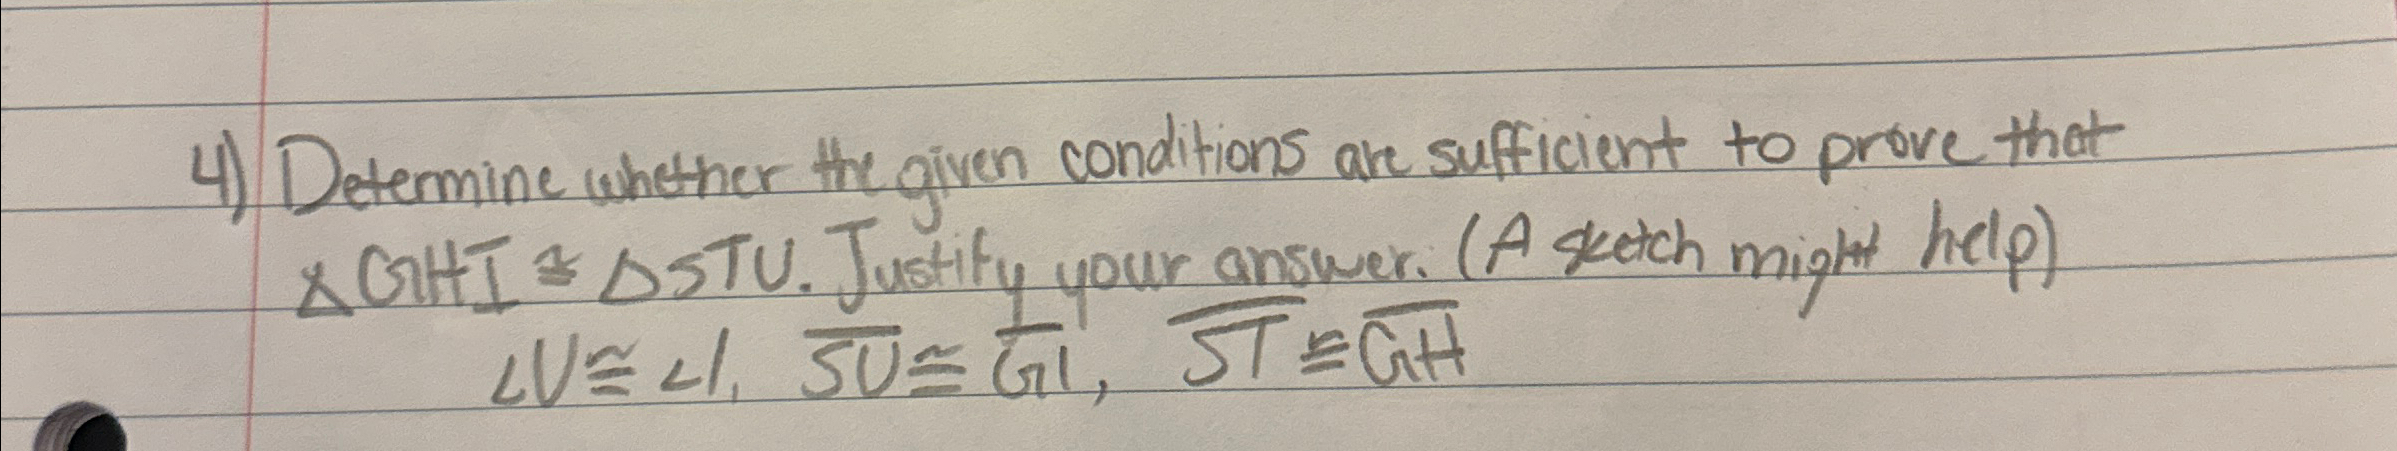 4) Determine whether the given conditions are sufficient to prove that
△GHI ≅ △STU. Justify your answer. (A sketch might help)
∠U ≅ ∠I, \overline{SU} ≅ \overline{GI}, \overline{ST} ≅ \overline{GH}